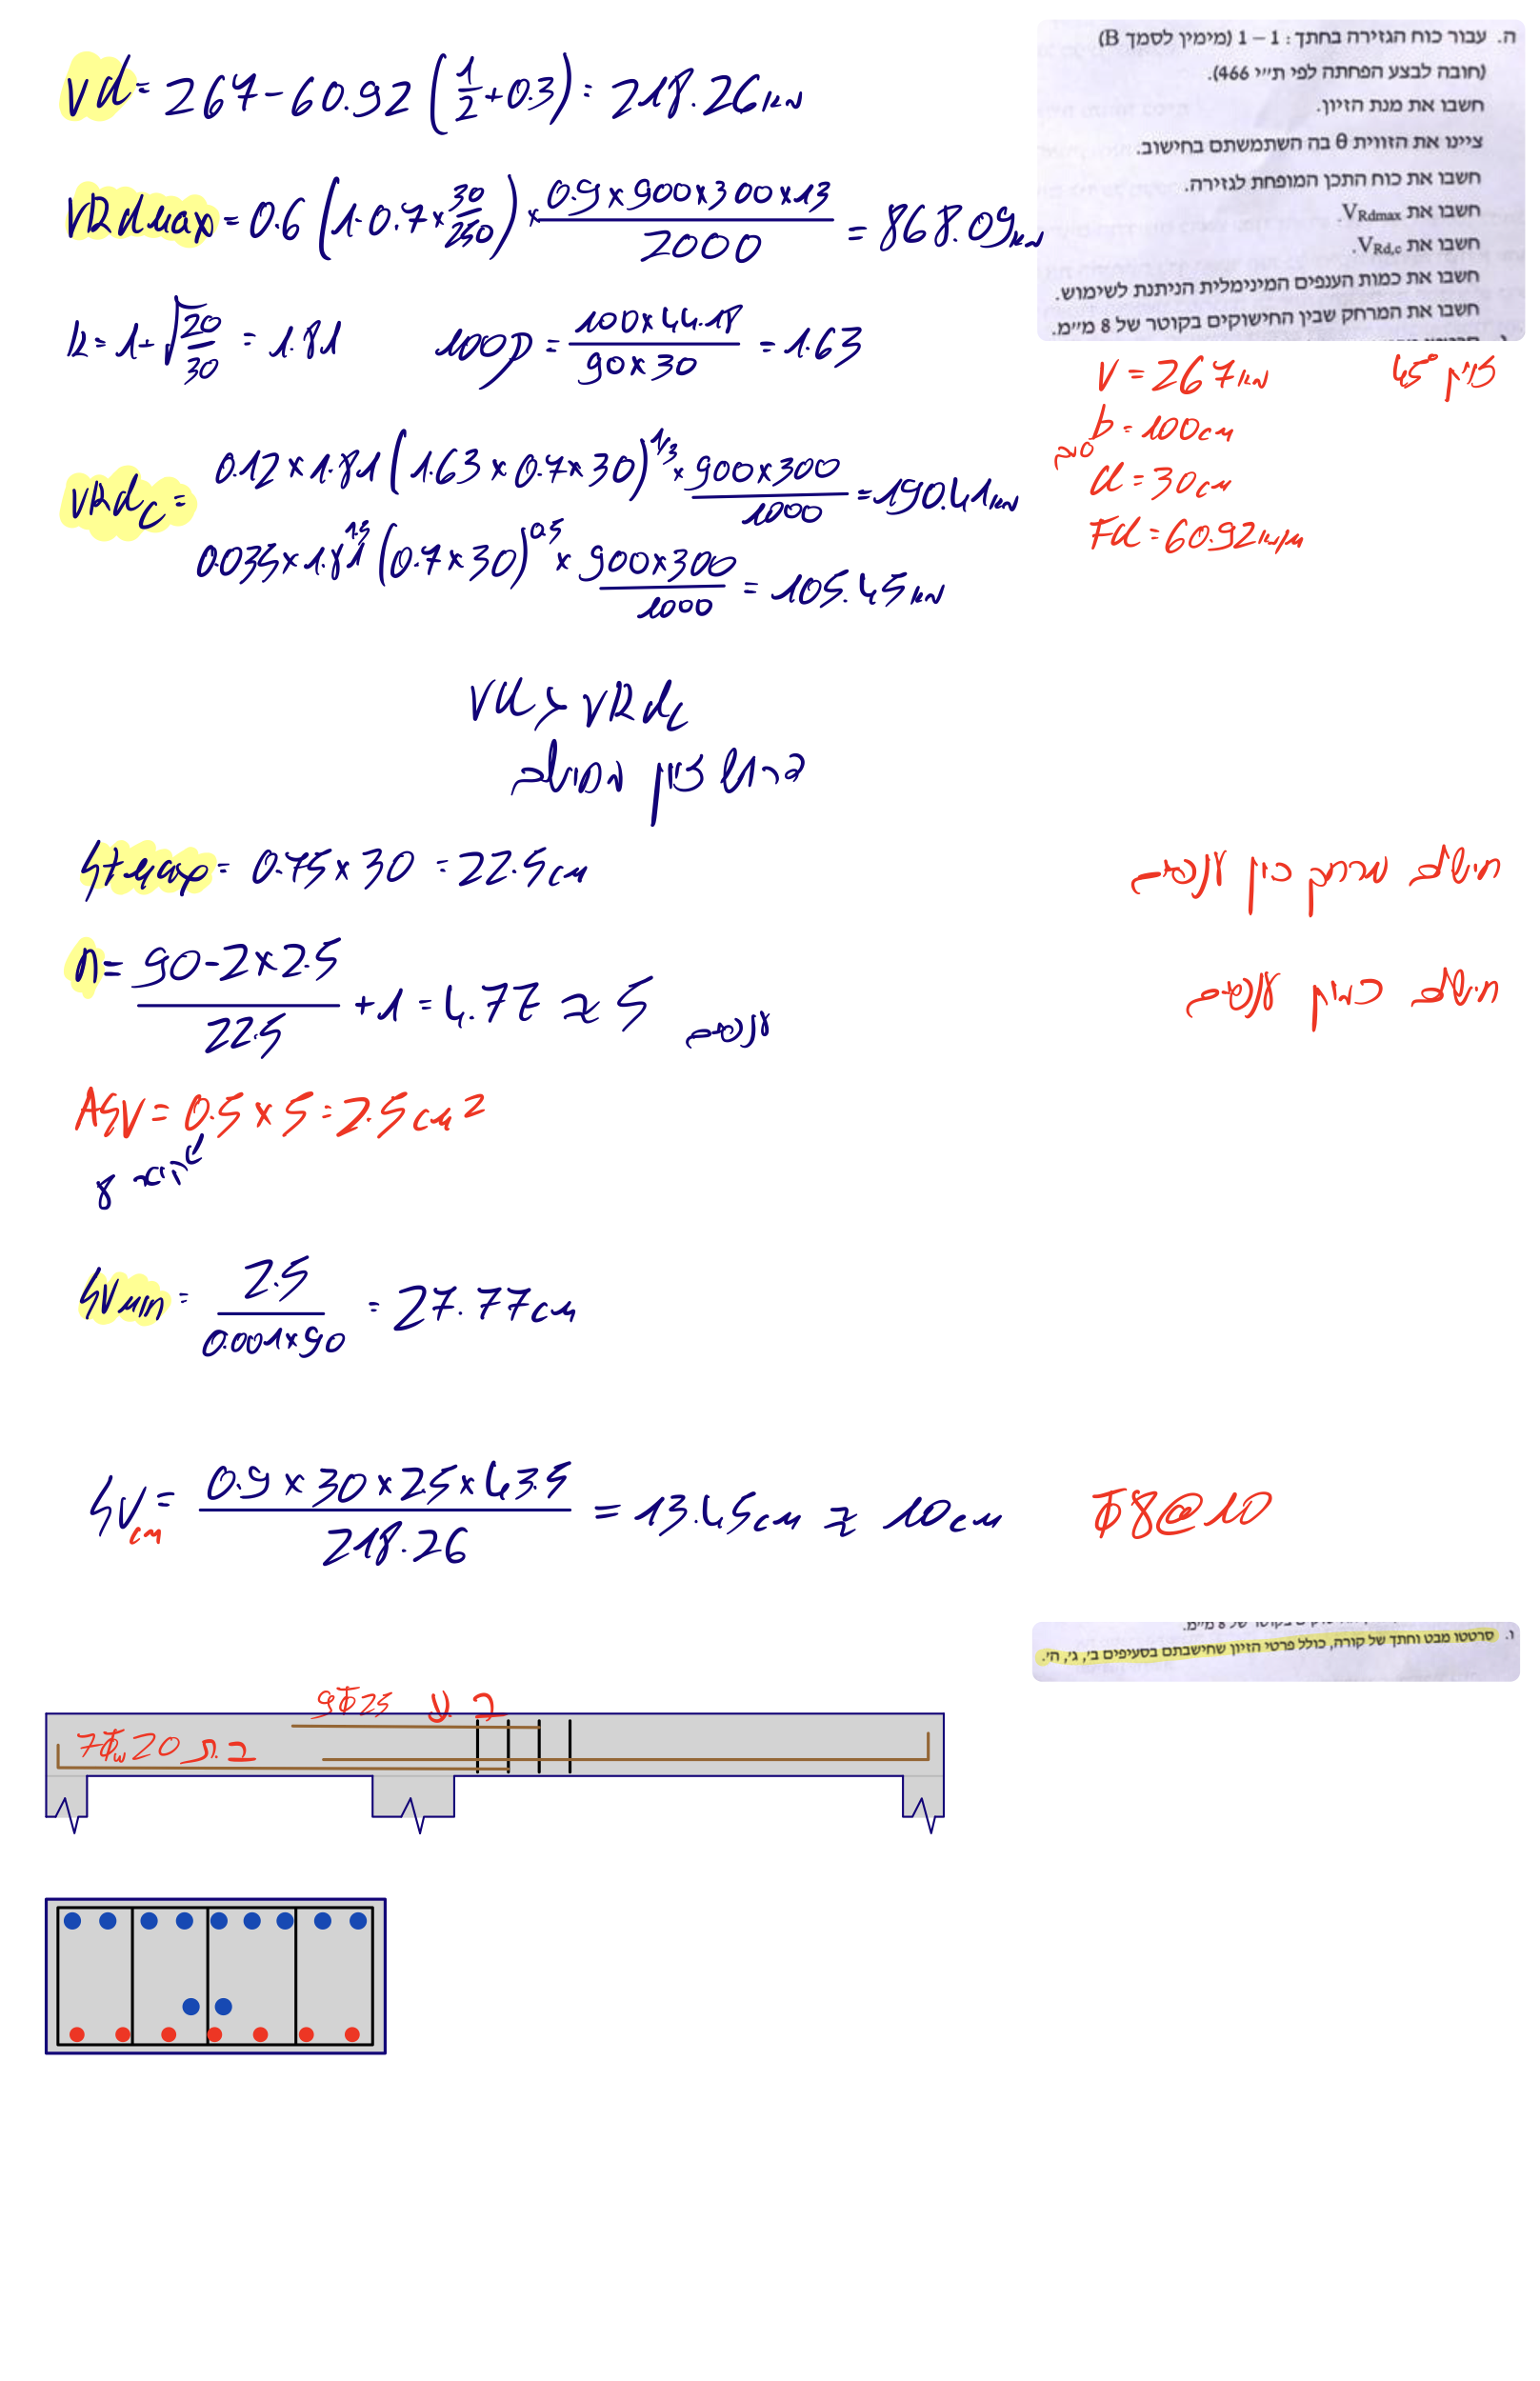 ה. עבור כוח הגזירה בחתך: 1 – 1 (מימין לסמך B)
(חובה לבצע הפחתה לפי ת״י 466).
חשבו את מנת הזיון.
ציינו את הזווית θ בה השתמשתם בחישוב.
חשבו את כוח התכן המופחת לגזירה.
חשבו את VRdmax.
חשבו את VRd,c.
חשבו את כמות הענפים המינימלית הניתנת לשימוש.
חשבו את המרחק שבין החישוקים בקוטר של 8 מ״מ.
Vd = 267-60.92 (1/2+0.3) = 218.26 קנ
VRdmax = 0.6 (1-0.7×30/250) × 0.9×900×300×13/2000 = 868.09 קנ
k = 1+√20/30 = 1.81 100ρ = 100×44.18/90×30 = 1.63
V = 267 קנ זוית 45°
b = 100cm
d = 30cm
Fd = 60.92 קנ/מ
VRdc = 0.12×1.81 (1.63×0.7×30)^1/3 × 900×300/1000 = 190.41 קנ
0.035×1.81^1.5 (0.7×30)^0.5 × 900×300/1000 = 105.45 קנ
Vd > VRdc
נדרש זיון מחושב
Stmax = 0.75×30 = 22.5cm
חישוב מרחק בין ענפים
n = 90-2×2.5/22.5 +1 = 4.77 ≈ 5 ענפים
חישוב כמות ענפים
ASV = 0.5×5 = 2.5cm²
8
SVmin = 2.5/0.001×90 = 27.77cm
SV cm = 0.9×30×2.5×43.5/218.26 = 13.45cm ≈ 10cm Φ8@10
בקוטר של 8 מ״מ.
ו. סרטטו מבט וחתך של קורה, כולל פרטי הזיון שחישבתם בסעיפים ב׳, ג׳, ה׳.
9Φ25 ע.2
7Φw20 ת.2